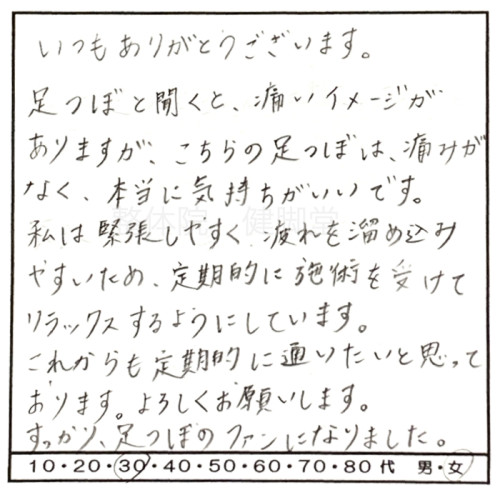 いつもありがとうございます。
足つぼと聞くと、痛いイメージが
ありますが、こちらの足つぼは、痛みが
なく、本当に気持ちがいいです。
整体院 健脚堂
私は緊張しやすく、疲れを溜め込み
やすいため、定期的に施術を受けて
リラックスするようにしています。
これからも定期的に通いたいと思って
おります。よろしくお願いします。
すっかり、足つぼのファンになりました。
10・20・30・40・50・60・70・80代 男・女